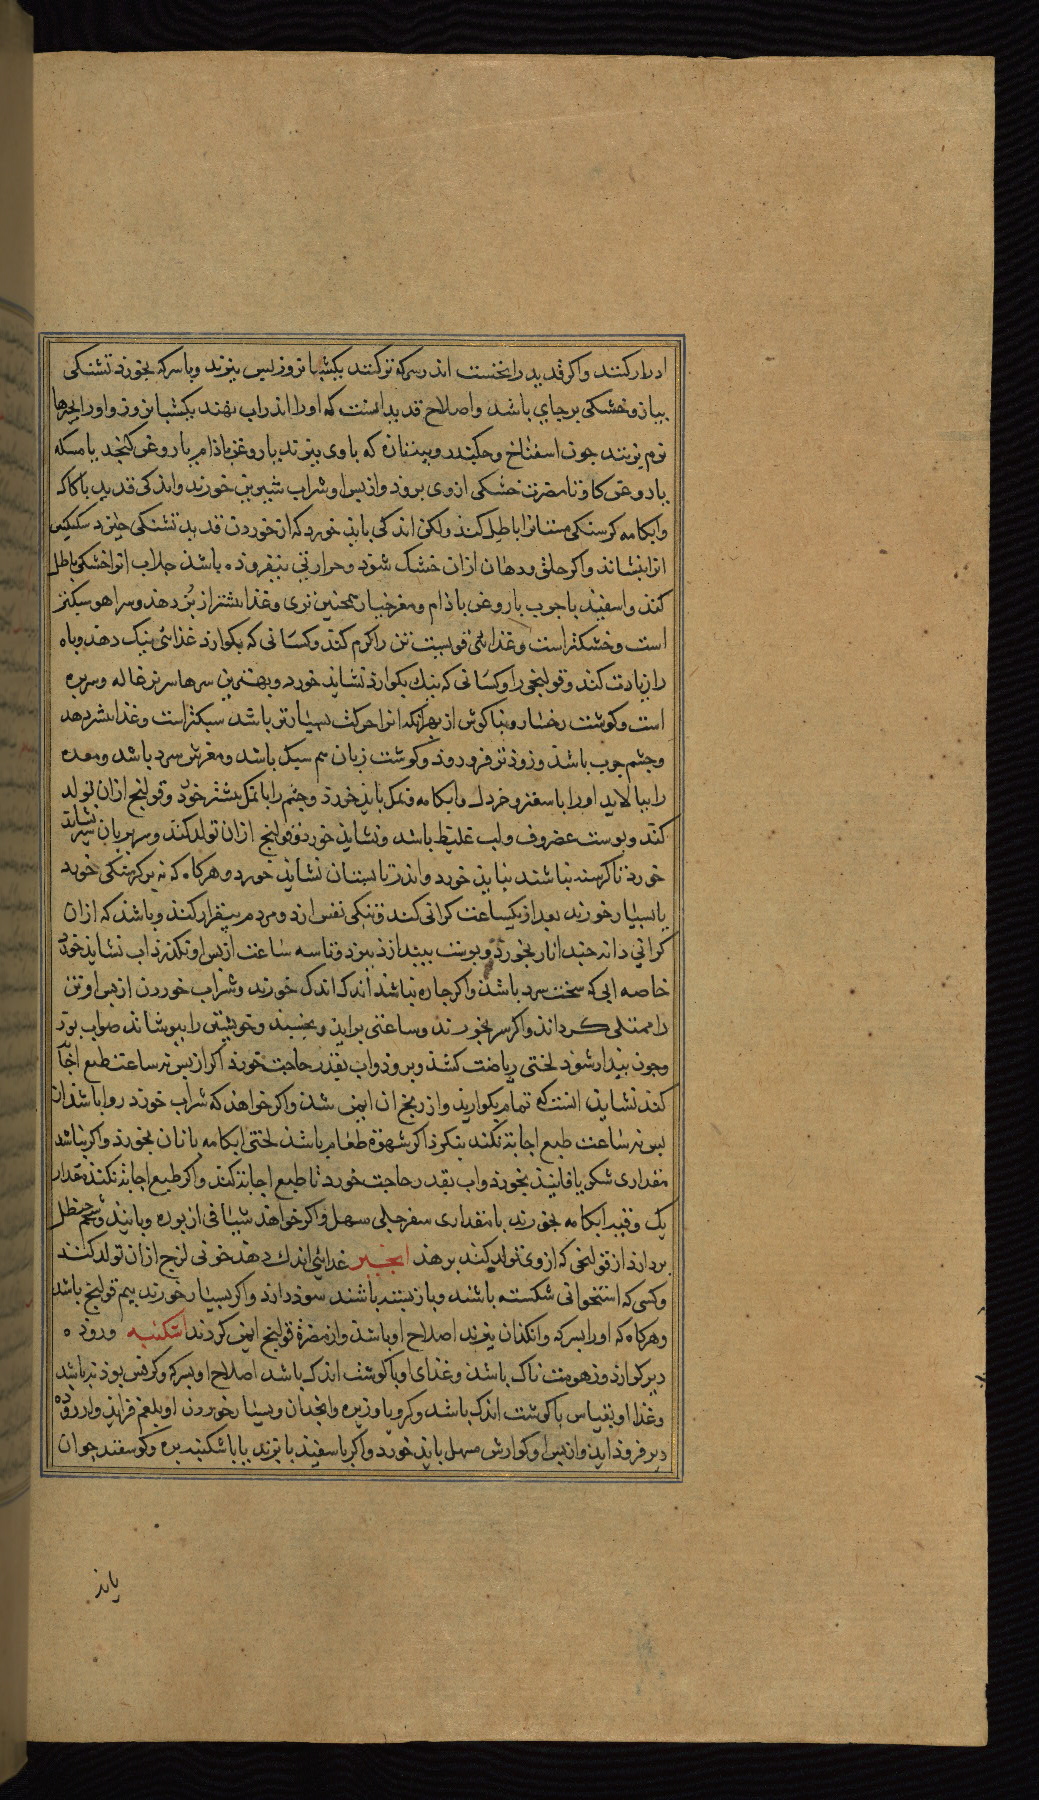 ادرار کنند واکر قدید را نخست اندر سرکه تر کنند یکشبانروز بس بپزند وبا سرکه بخورد تشنکی
بیاز وخشکی برجای باشد واصلاح قدید انست که اورا اندر اب نهند یکشبانروز واورا بچیزها
نرم بزنند جون اسفناخ وجکندر وبیتفازه که باوی بپزند یا روغن باذام یا روغن کنجد یا مسکه
یا روغن کاو تا مضرت خشکی ازوی برود واز بس او شراب شیرین خورند واندکی قدید با کاکه
وابکامه کرسنکی را باطل کند ولکن اندکی باید خورد که از خوردن قدید تشنکی خیزد
انرا بنشاند واکر حلق ودهان ازان خشک شود وحرارتی بیفروذه باشد جلاب انرا خشکی باطل
کند واسفیذبا جرب با روغن باذام ومغز خیار همجنین تری وغذا بشتر از بز دهد وسر اهو سبکتر
است وخشکتر است وغذائی قویست تن را کرم کند وکسانی که بکوارد غذائی نیک دهد وباه
را زیادت کند وقولنجی را وکسانی که نیك بکوارد نشاید خورد وبهترین سرها سر بزغاله وسر بره
است وکوشت رخسار وبناکوش از بهر انکه انرا حرکت بسیارتر باشد سبکتر است وغذا بشتر دهد
وجشم جرب باشد وزوذتر فرو روذ وکوشت زبان هم سبک باشد ومغزش سرد باشد ومعده
را بیالاید اورا با سعتر وخردل وابکامه ونمک باید خورد وجشم را با نمک بشتر خورد وقولنج ازان تولد
کند وبوست غضروف ولب غلیظ باشد ونشاید خورد وقولنج ازان تولد کند وسر بریان
خورد تا کرسنه نباشند نباید خورد واندر تابستان نشاید خورد وهرکاه که نه بر کرسنکی خورد
یا بسیار خورند بعد از یکساعت کرانی کند وتنکی نفس ارد ومردم بیقرار کند وباشد که ازان
کرانی دانه جند انار بخورد وبوست بیندازد وتا سه ساعت از بس او نکذرد اب نشاید خورد
خاصه ابی که سخت سرد باشد واکر جاره نباشد اندک اندک خورند وشراب خوردن از بس او تن
را ممتلی کرداند واکر سر بخورند وساعتی براید وبخسبند وخویشتن را ببوشاند صواب بوذ
وجون بیدار شود لختی ریاضت کند وبروذ واب بقدر حاجت خورد اکر از بس نه ساعت طبع اجابة
کند نشاید انست که تمام بکوارید واز رنج ان ایمن شد واکر خواهد که شراب خورد روا باشد
بس نه ساعت طبع اجابة نکند بنکرد اکر شهوة طعام باشد لختی ابکامه با نان بخورد واکر نباشد
مقداری شکر یا فانیذ بخورد واب بقدر حاجت خورد تا طبع اجابة کند واکر طبع اجابة نکند مقدار
یک وقیه ابکامه بخورند با مقداری سفرجلی مسهل واکر خواهد شیافی از بوره وبانیذ وشحم حنظل
بردارد از قولنجی که ازوی تولد کند برهد انجیر غذائی اندك دهد خونی لزج ازان تولد کنند
وکسی که استخوانی شکسته باشند وباز بسته باشند سود دارد واکر بسیار خورند بیم قولنج باشد
وهرکاه که اورا بسرکه وانکذان بپزند اصلاح او باشد واز مضرة قولنج ایمن کردند اشکنبه وروده
دیر کوارد وزهومت ناک باشد وغذای او با کوشت اندک باشد اصلاح او بسرکه وکرفس بوذنه باشد
وغذا او بقیاس با کوشت اندک باشد وکرویا وزیره وانجدان وبسیار خوردن او بلغم فزاید واز روده
دیر فروذ اید واز بس او کوارش مسهل باید خورد واکر با سفیذبا بزند یا با شکنبه بره وکوسفند جوان
باید